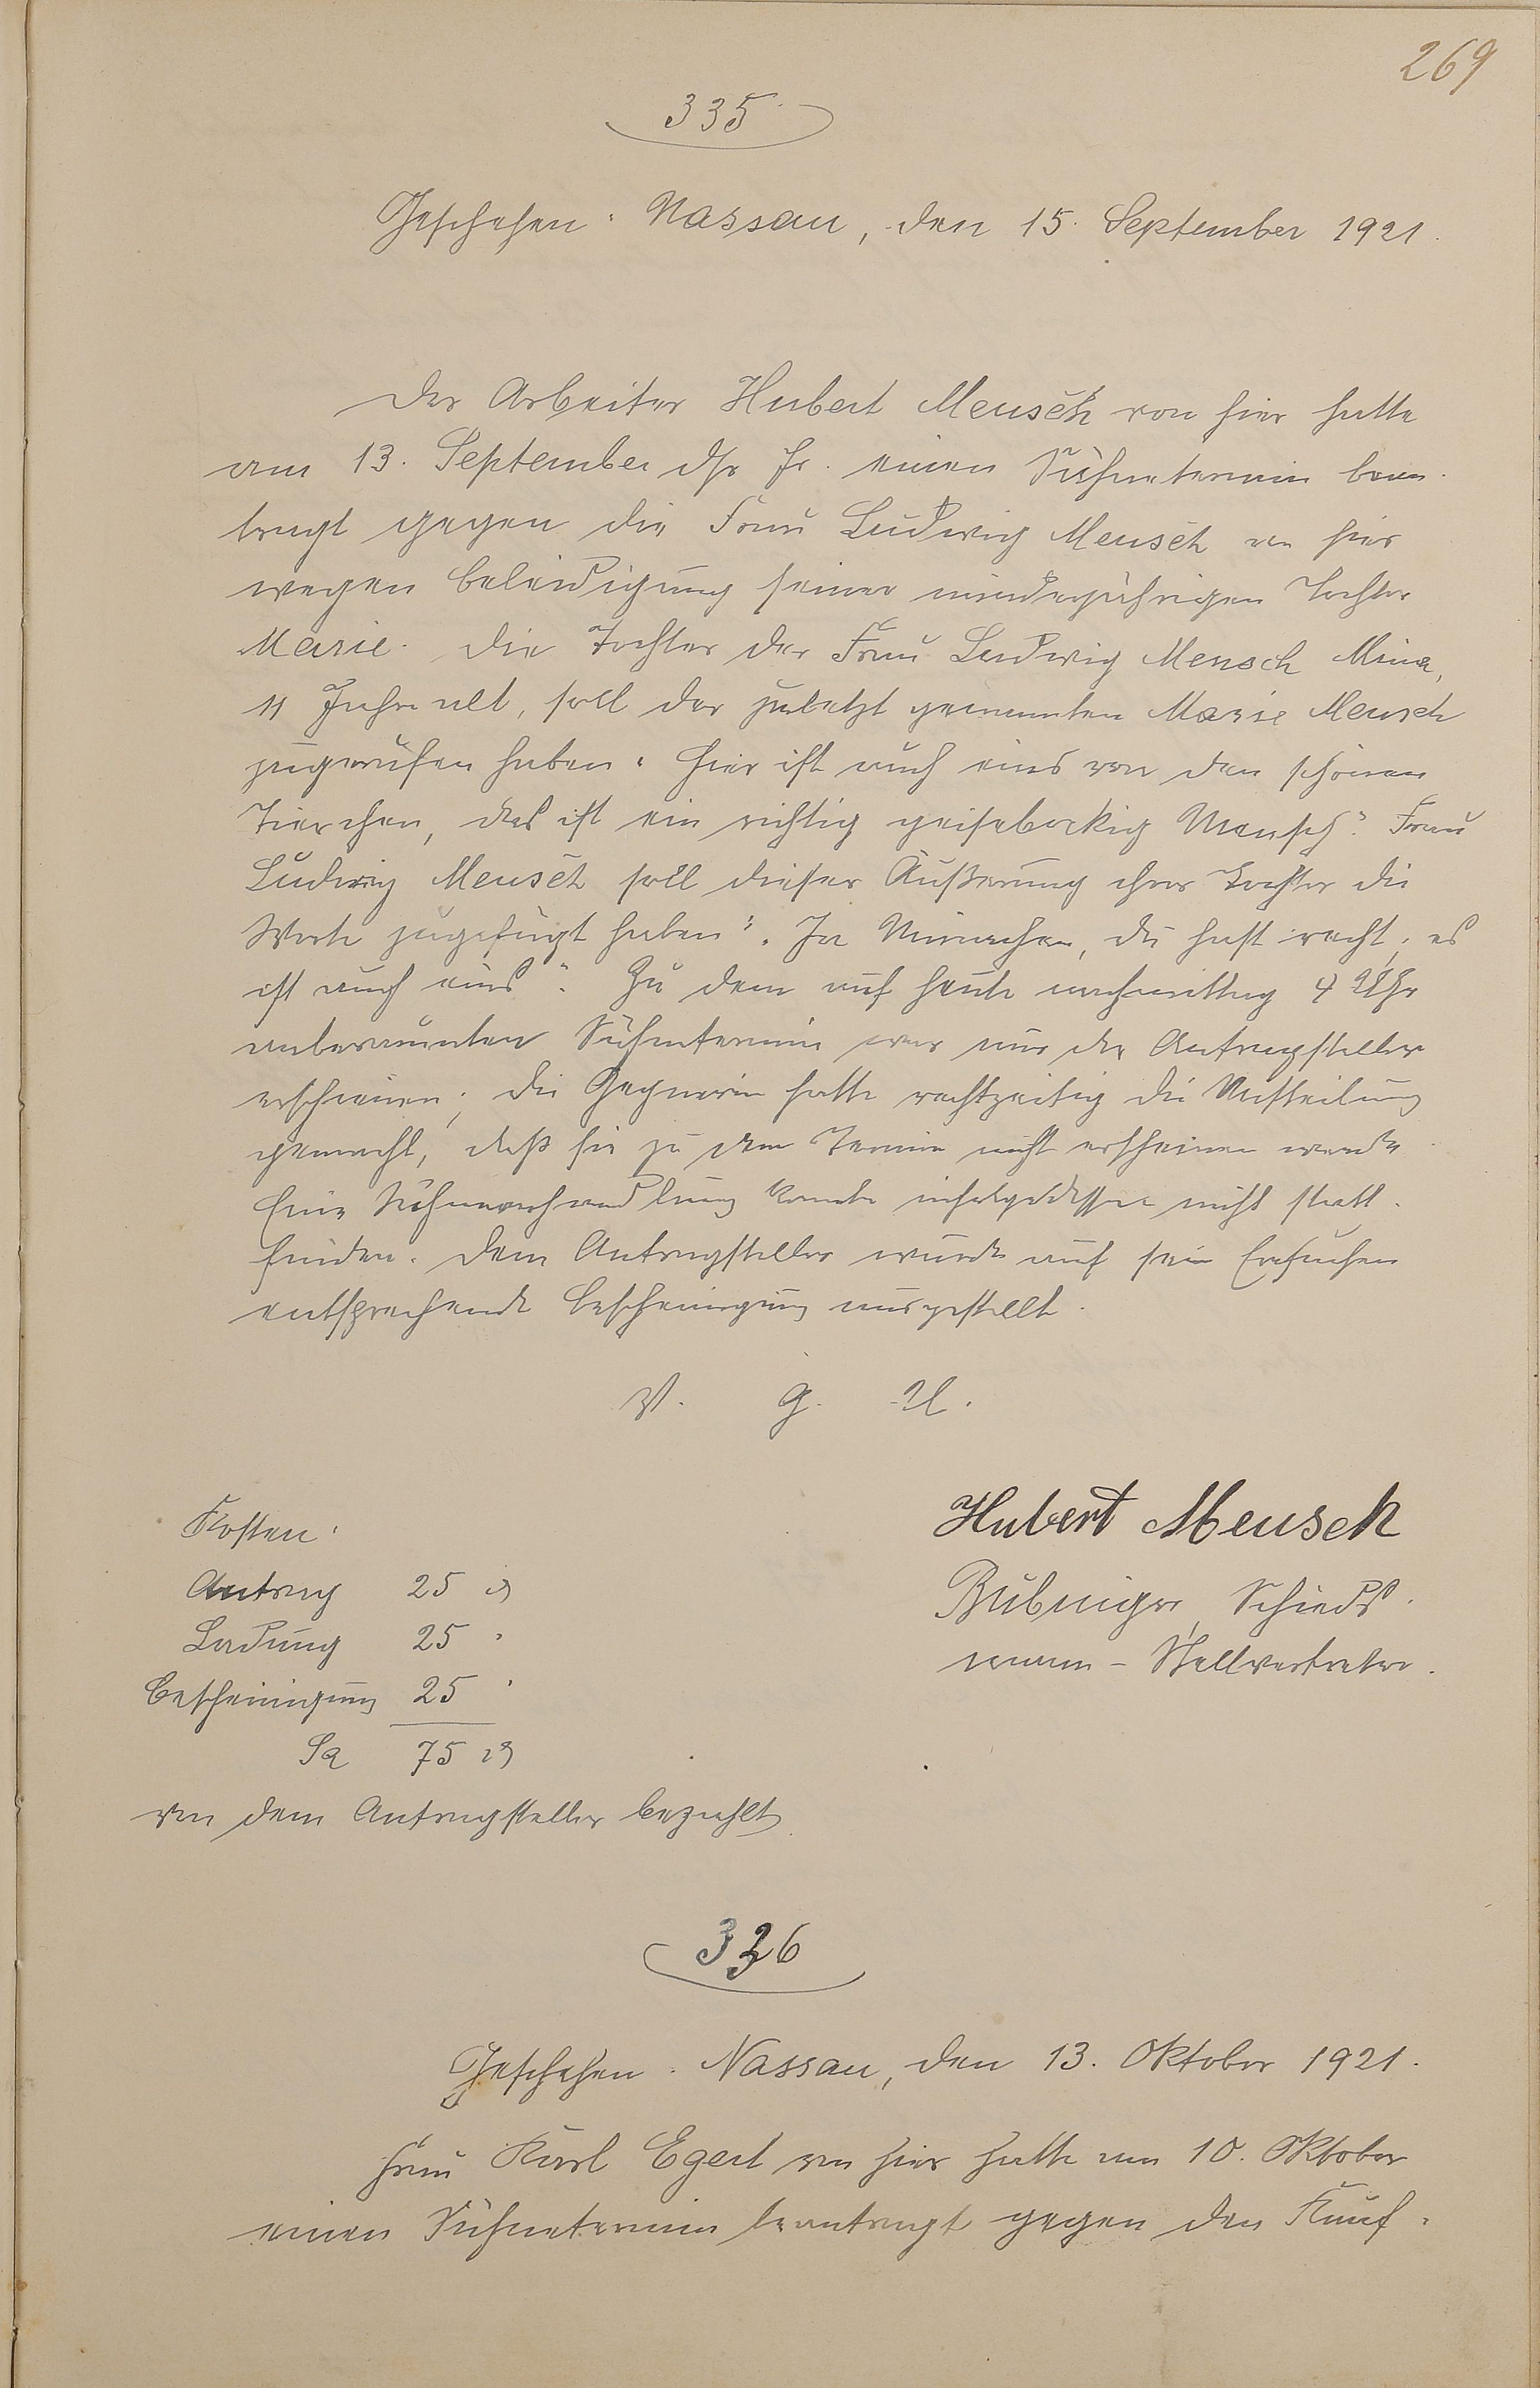 269
335
Geschehen: Nassau, den 15. September 1921.
Der Arbeiter Hubert Meusch von hier hatte
am 13. September ds Js. einen Sühnetermin bean-
tragt gegen die Frau Ludwig Meusch von hier
wegen Beleidigung seiner minderjährigen Tochter
Marie. Die Tochter der Frau Ludwig Meusch Mina,
11 Jahre alt, soll der zuletzt genannten Marie Meusch
zugerufen haben: „Hier ist auch eins von den schönen
Tierchen, das ist ein richtig geisebockig Mensch". Frau
Ludwig Meusch soll dieser Äußerung ihrer Tochter die
Worte zugefügt haben: „Ja Minachen, du hast recht, es
ist auch eins". Zu dem auf heute nachmittag 4 Uhr
anberaumten Sühnetermin war nur der Antragsteller
erschienen; die Gegnerin hatte rechtzeitig die Mitteilung
gemacht, daß sie zu dem Termin nicht erscheinen werde.
Eine Sühneverhandlung konnte infolgedessen nicht statt-
finden. Dem Antragsteller wurde auf sein Ersuchen
entsprechende Bescheinigung ausgestellt.
V. g. U.
Hubert Meusch
Bübinger, Schieds-
mann-Stellvertreter.
Kosten:
Antrag 25 ₰
Ladung 25 "
Bescheinigung 25 "
Sa 75 ₰
von dem Antragsteller bezahlt
336
Geschehen: Nassau, den 13. Oktober 1921.
Frau Karl Egert von hier hatte am 10. Oktober
einen Sühnetermin beantragt gegen den Kauf-